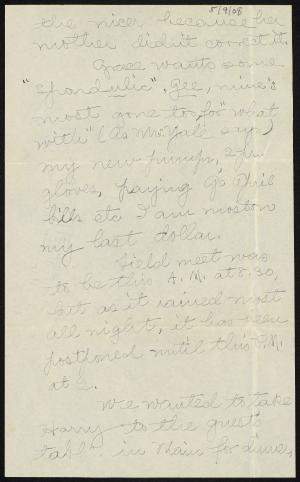 5/9/08
the nicer because her
mother didn't correct it.
Grace wants some
"spondulic". Gee, mine's
most gone too, for "what
with" (As Mr. Yall says)
my new pumps, 2 pr.
gloves, paying G's Phil
bills etc I am most on
my last dollar.
Field meet was
to be this A.M. at 8.30,
but as it rained most
all night, it has been
postponed until this P.M.
at 2.
We wanted to take
Harry to the guest
table in Main for dinner,